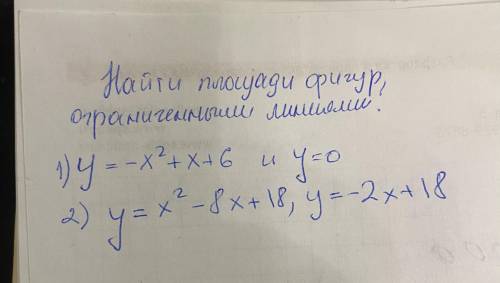 Найти площади фигур,
ограниченными линиями:
1) y = -x² + x + 6 и y = 0
2) y = x² - 8x + 18, y = -2x + 18